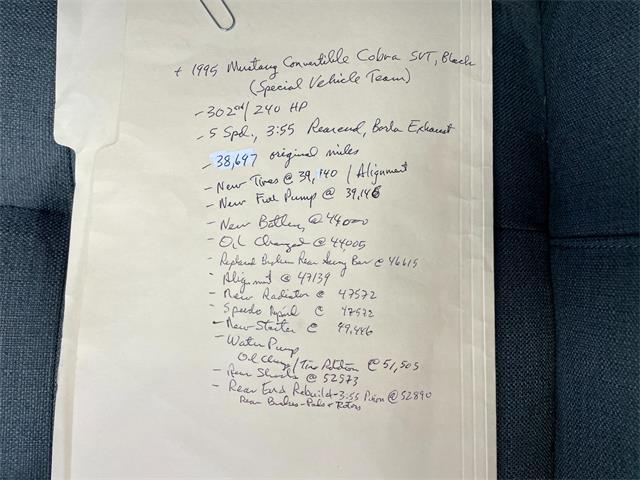 + 1995 Mustang Convertible Cobra SVT, Black
(Special Vehicle Team)
- 302 / 240 HP
- 5 Spd., 3:55 Rearend, Borla Exhaust
- 38,697 original miles
- New Tires @ 39,140 / Alignment
- New Fuel Pump @ 39,146
- New Battery @ 44000
- Oil Changed @ 44005
- Replaced Broken Rear Sway Bar @ 46615
- Alignment @ 47139
- New Radiator @ 47572
- Speedo @ 47572
- New Starter @ 49,446
- Water Pump
Oil Change / Tire Rotation @ 51,505
- Rear Shocks @ 52573
- Rear End Rebuild - 3:55 Pinion @ 52890
Rear Brakes - Pads + Rotors